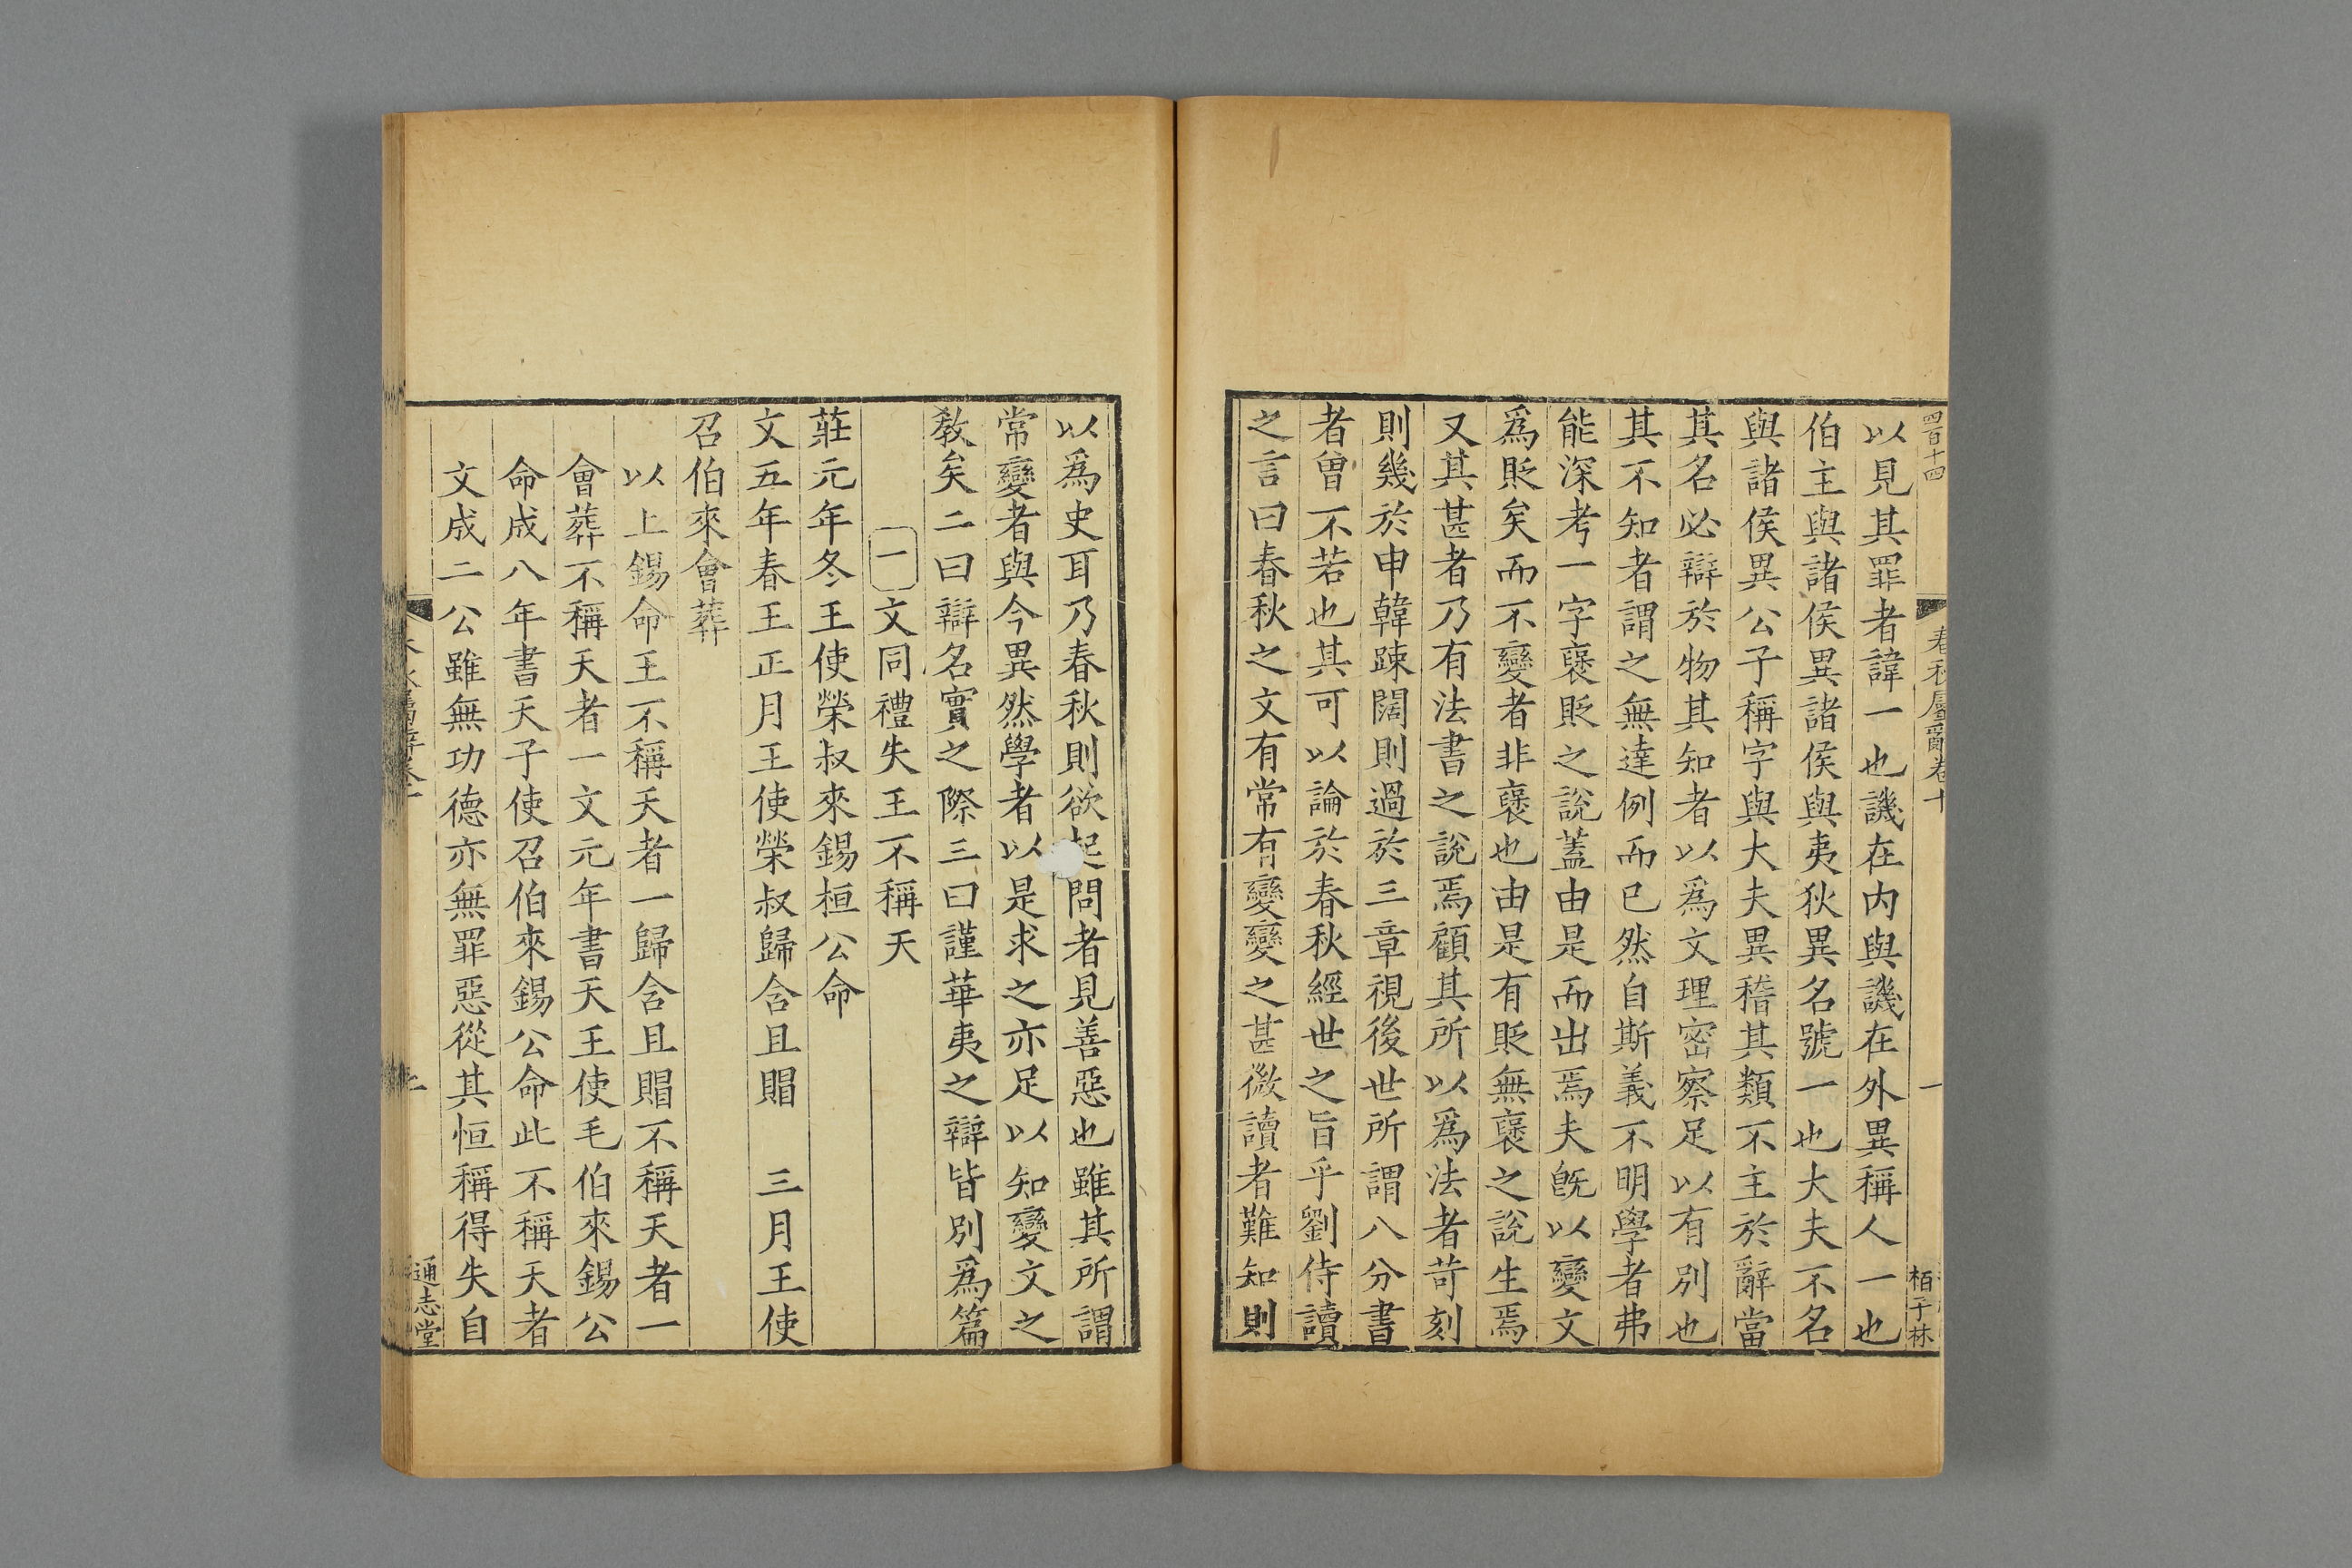 四百十四
春秋屬辭卷十
一
栢子林
以見其罪者諱一也譏在内與譏在外異稱人一也
伯主與諸侯異諸侯與夷狄異名號一也大夫不名
與諸侯異公子稱字與大夫異稽其類不主於辭當
其名必辯於物其知者以爲文理密察足以有別也
其不知者謂之無達例而已然自斯義不明學者弗
能深考一字襃貶之說蓋由是而出焉夫旣以變文
爲貶矣而不變者非襃也由是有貶無襃之說生焉
又其甚者乃有法書之說焉顧其所以爲法者苛刻
則幾於申韓踈闊則過於三章視後世所謂八分書
者曾不若也其可以論於春秋經世之旨乎劉侍讀
之言曰春秋之文有常有變變之甚微讀者難知則
以爲史耳乃春秋則欲起問者見善惡也雖其所謂
常變者與今異然學者以是求之亦足以知變文之
敎矣二曰辯名實之際三曰謹華夷之辯皆別爲篇
一 文同禮失王不稱天
莊元年冬王使榮叔來錫桓公命
文五年春王正月王使榮叔歸含且賵 三月王使
召伯來會葬
以上錫命王不稱天者一歸含且賵不稱天者一
會葬不稱天者一文元年書天王使毛伯來錫公
命成八年書天子使召伯來錫公命此不稱天者
文成二公雖無功德亦無罪惡從其恒稱得失自
通志堂